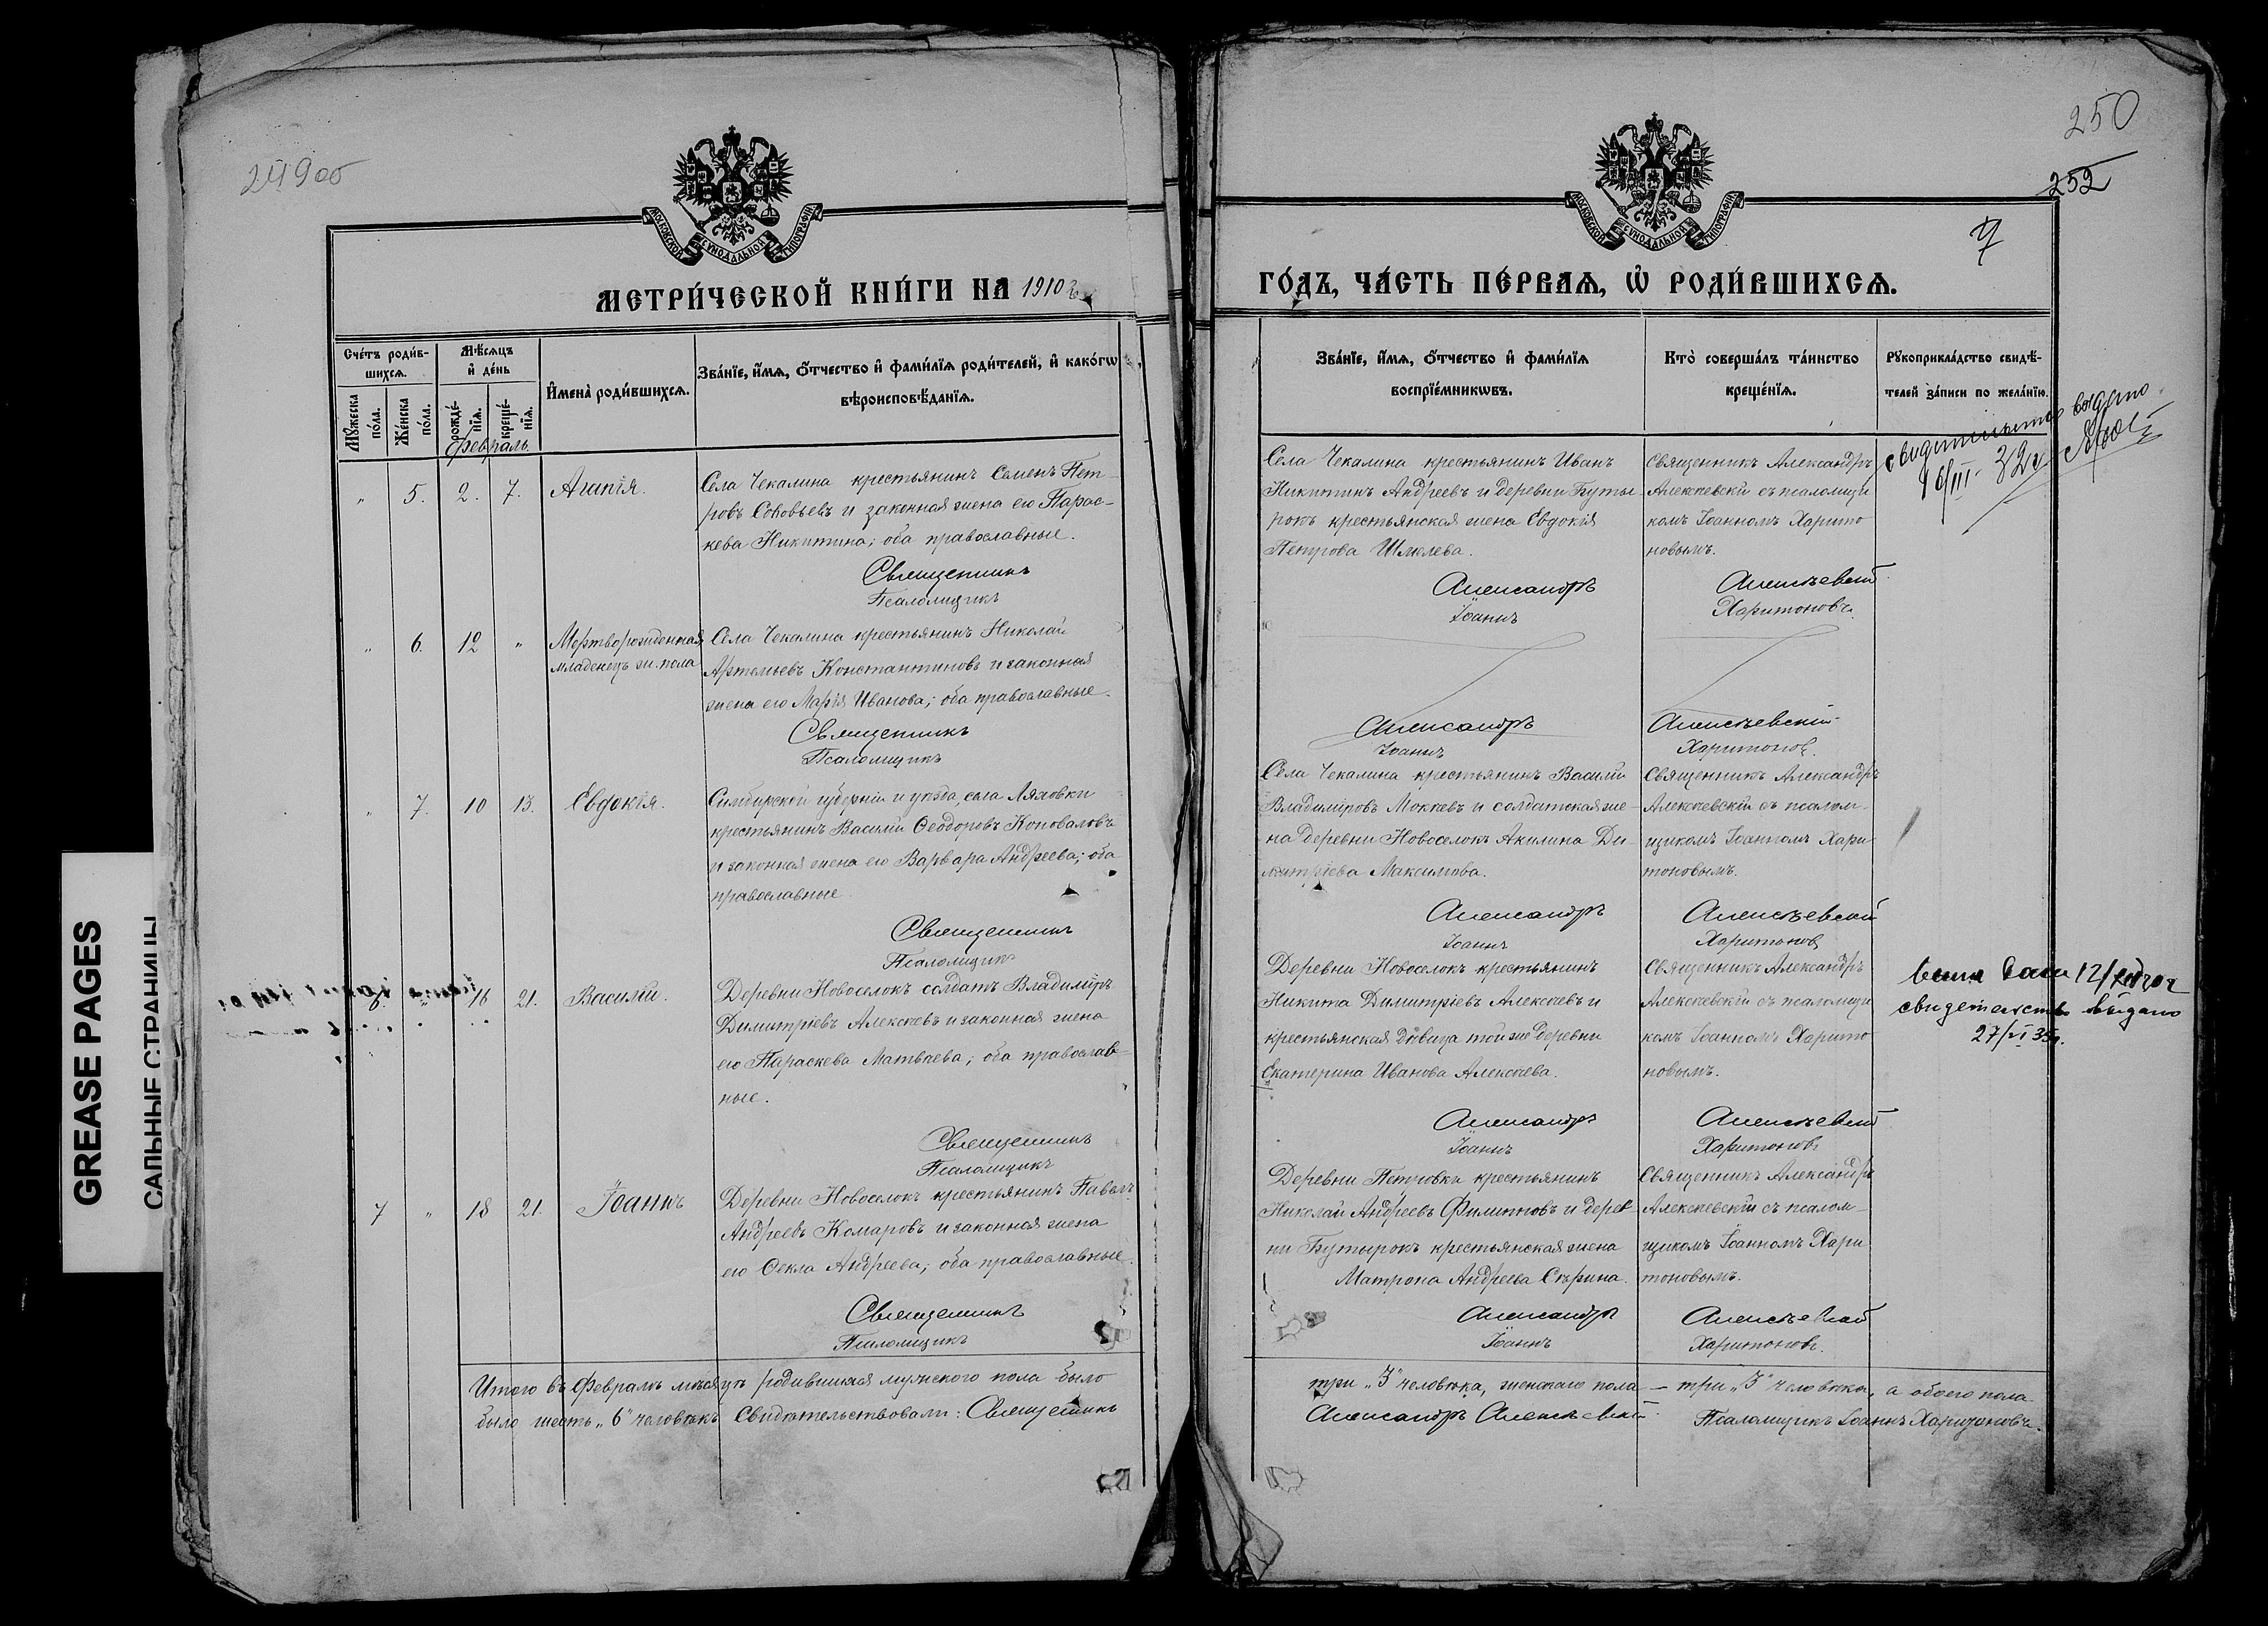 249об
МОСКОВСКОЙ СѴНОДАЛЬНОЙ ТИПОГРАФІИ
МЕТРИ́ЧЕСКОЙ КНИ́ГИ НА 1910 г.
Сче́тъ роди́в-
шихсѧ.
Мѣ́сѧцъ
и҆ де́нь
И҆мена̀ роди́вшихсѧ.
Зва́нїе, и҆́мѧ, ѻ҆́тчество и҆ фами́лїѧ роди́телей, и҆ како́гѡ
вѣроисповѣ́данїѧ.
Мꙋ́жеска
по́ла.
Же́нска
по́ла.
рожде́-
нїѧ.
креще́-
нїѧ.
Февраль.
" 5. 2. 7. Агапія.
Села Чекалина крестьянинъ Семенъ Пет-
ровъ Соловьевъ и законная жена его Парас-
кева Никитина; оба православные.
Священникъ
Псаломщикъ
" 6. 12 " Мертворожденная
младенецъ ж. пола
Села Чекалина крестьянинъ Николай
Артемьевъ Константиновъ и законная
жена его Марія Иванова; оба православные.
Священникъ
Псаломщикъ
" 7. 10 13. Евдокія.
Симбирской губерніи и уѣзда, села Ляховки
крестьянинъ Василій Ѳеодоровъ Коноваловъ
и законная жена его Варвара Андреева; оба
православные
Священникъ
Псаломщикъ
" 16 21. Василій.
Деревни Новоселокъ солдатъ Владиміръ
Димитріевъ Алексѣевъ и законная жена
его Параскева Матвѣева; оба православ-
ные.
Священникъ
Псаломщикъ
7 " 18 21. Іоаннъ
Деревни Новоселокъ крестьянинъ Павелъ
Андреевъ Комаровъ и законная жена
его Ѳекла Андреева; оба православные.
Священникъ
Псаломщикъ
Итого въ Февралѣ мѣсяцѣ родившихся мужского пола было
было шесть „6" человѣкъ. Свидѣтельствовали: Священникъ
250
252
7
МОСКОВСКОЙ СѴНОДАЛЬНОЙ ТИПОГРАФІИ
ГО́ДЪ, ЧА́СТЬ ПЕ́РВАѦ, Ѡ҆ РОДИ́ВШИХСѦ.
Зва́нїе, и҆́мѧ, ѻ҆́тчество и҆ фами́лїѧ
воспрїе́мникѡвъ.
Кто̀ соверша́лъ та́инство
креще́нїѧ.
Рꙋкоприкла́дство свидѣ́-
телей за́писи по жела́нїю.
Села Чекалина крестьянинъ Иванъ
Никитинъ Андреевъ и деревни Буты-
рокъ крестьянская жена Евдокія
Петрова Шмелева.
Священникъ Александръ
Алексѣевскій съ псаломщи
комъ Іоанномъ Харито
новымъ.
свидетельство выдано.
16/III. 32г
Александръ Алексѣевскій
Іоаннъ Харитоновъ.
Александръ Алексѣевскій
Іоаннъ Харитоновъ.
Села Чекалина крестьянинъ Василій
Владиміровъ Мокѣевъ и солдатская же-
на деревни Новоселокъ Акилина Ди-
митріева Максимова.
Священникъ Александръ
Алексѣевскій съ псалом-
щикомъ Іоанномъ Хари
тоновымъ.
Александръ Алексѣевскій
Іоаннъ Харитоновъ
Деревни Новоселокъ крестьянинъ
Никита Димитріевъ Алексѣевъ и
крестьянская дѣвица той же деревни
Екатерина Иванова Алексѣева.
Священникъ Александръ
Алексѣевскій съ псаломщи
комъ Іоанномъ Харито
новымъ.
свидетельство выдано
27/VI 35г.
Александръ Алексѣевскій
Іоаннъ Харитоновъ
Деревни Петровки крестьянинъ
Николай Андреевъ Филипповъ и дерев-
ни Бутырокъ крестьянская жена
Матрона Андреева Сѣрина.
Священникъ Александръ
Алексѣевскій съ псалом-
щикомъ Іоанномъ Хари
тоновымъ.
Александръ Алексѣевскій
Іоаннъ Харитоновъ.
три „3" человѣка, женскаго пола – три „3" человѣка, а обоего пола
Александръ Алексѣевскій. Псаломщикъ Іоаннъ Харитоновъ.
GREASE PAGES
САЛЬНЫЕ СТРАНИЦЫ